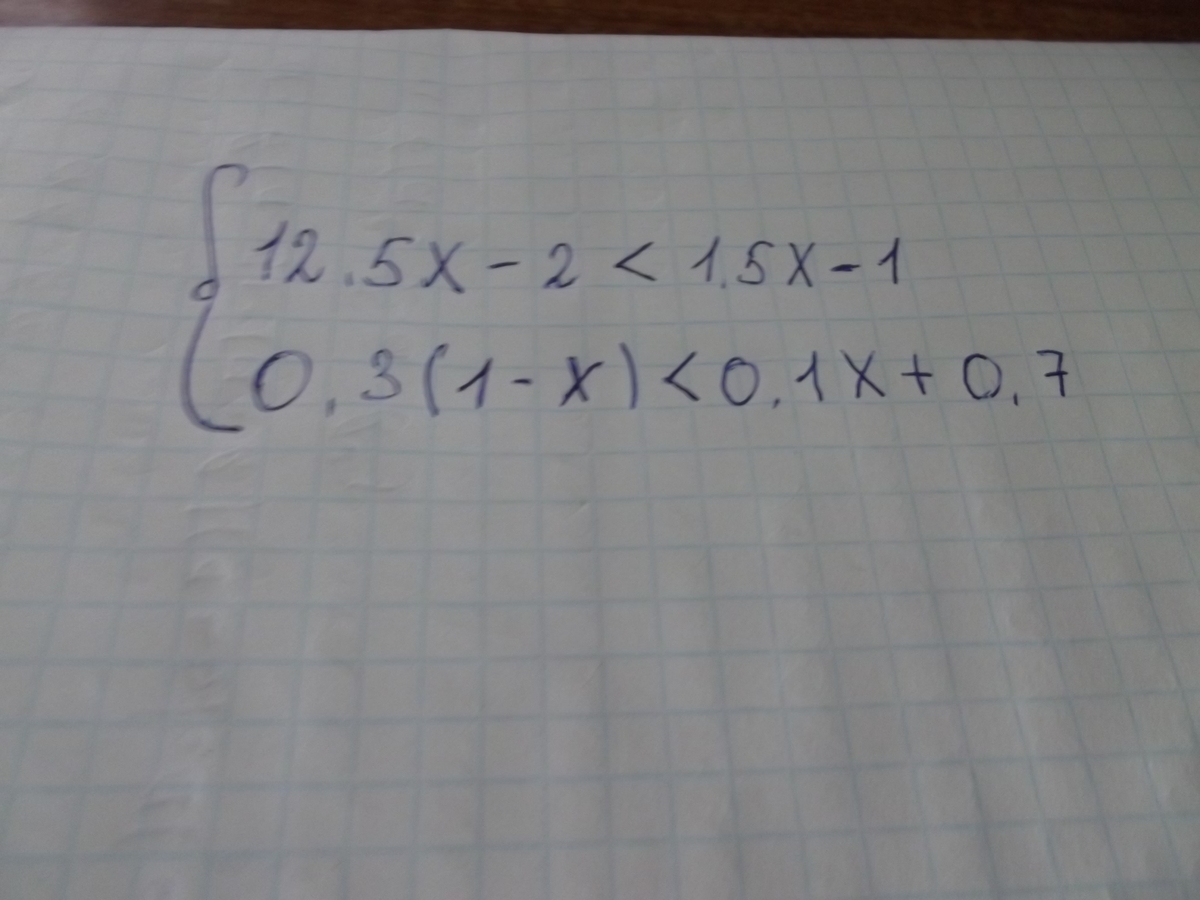 12.5x - 2 < 1.5x - 1
0.3(1 - x) < 0.1x + 0.7